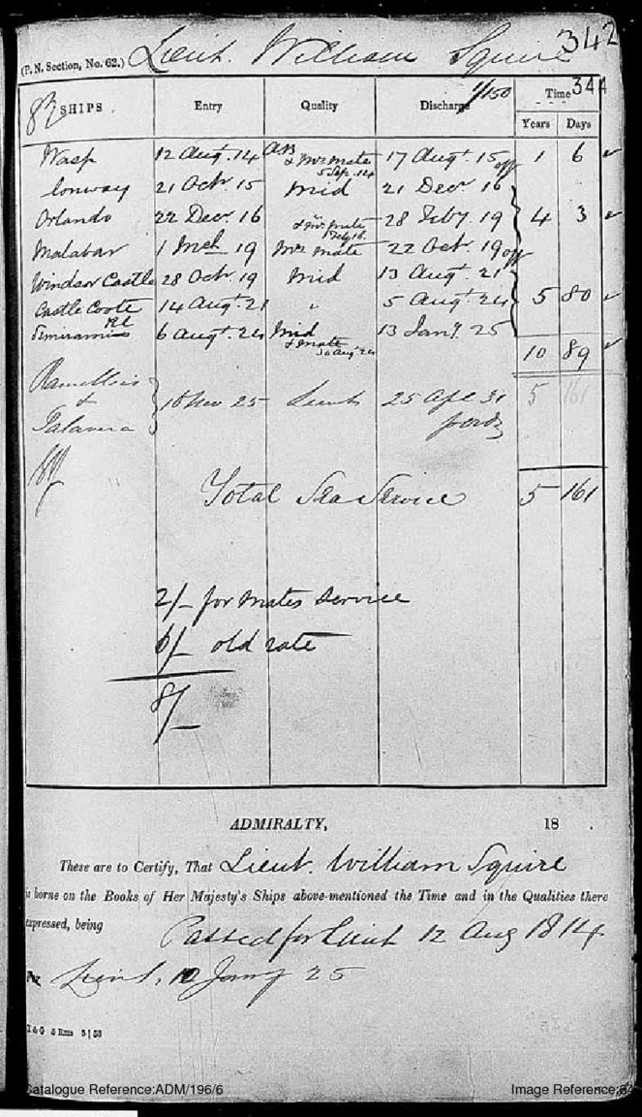 342
(P. N. Section, No. 62.) Lieut. William Squire
344
SHIPS Entry Quality Discharge 1/150 Time
Years Days
Wasp 12 Augt. 14 AB & Mrs Mate 5 Sep. 14 17 Augt. 15 off 1 6
Conway 21 Octr. 15 Mid 21 Decr. 16
Orlando 22 Decr 16 & Mrs Mate 28 Feby. 19 4 3
Malabar 1 Mch 19 Mrs Mate 22 Octr. 19 off
Windsor Castle 28 Octr. 19 Mid 13 Augt. 21
Castle Coote 14 Augt. 21 " 5 Augt. 24 5 80
Semiramis 6 Augt. 24 Mid & Mate 30 Augt. 24 13 Jany. 25
10 89
Ramillies
& 18 Nov 25 Lieut 25 Apl 31 5 161
Talavera
Total Sea Service 5 161
2/- for Mates Service
6/- old rate
8/-
ADMIRALTY, 18 .
These are to Certify, That Lieut. William Squire
is borne on the Books of Her Majesty's Ships above-mentioned the Time and in the Qualities there
expressed, being
Passed for Lieut 12 Aug 1814
Lieut, 10 Jany 25
Catalogue Reference:ADM/196/6 Image Reference: